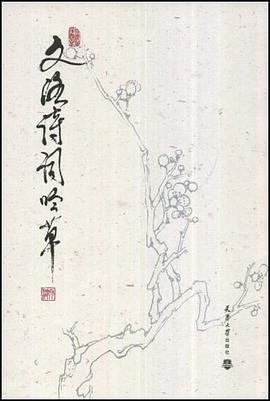 文洛诗词吟草
天津大学出版社